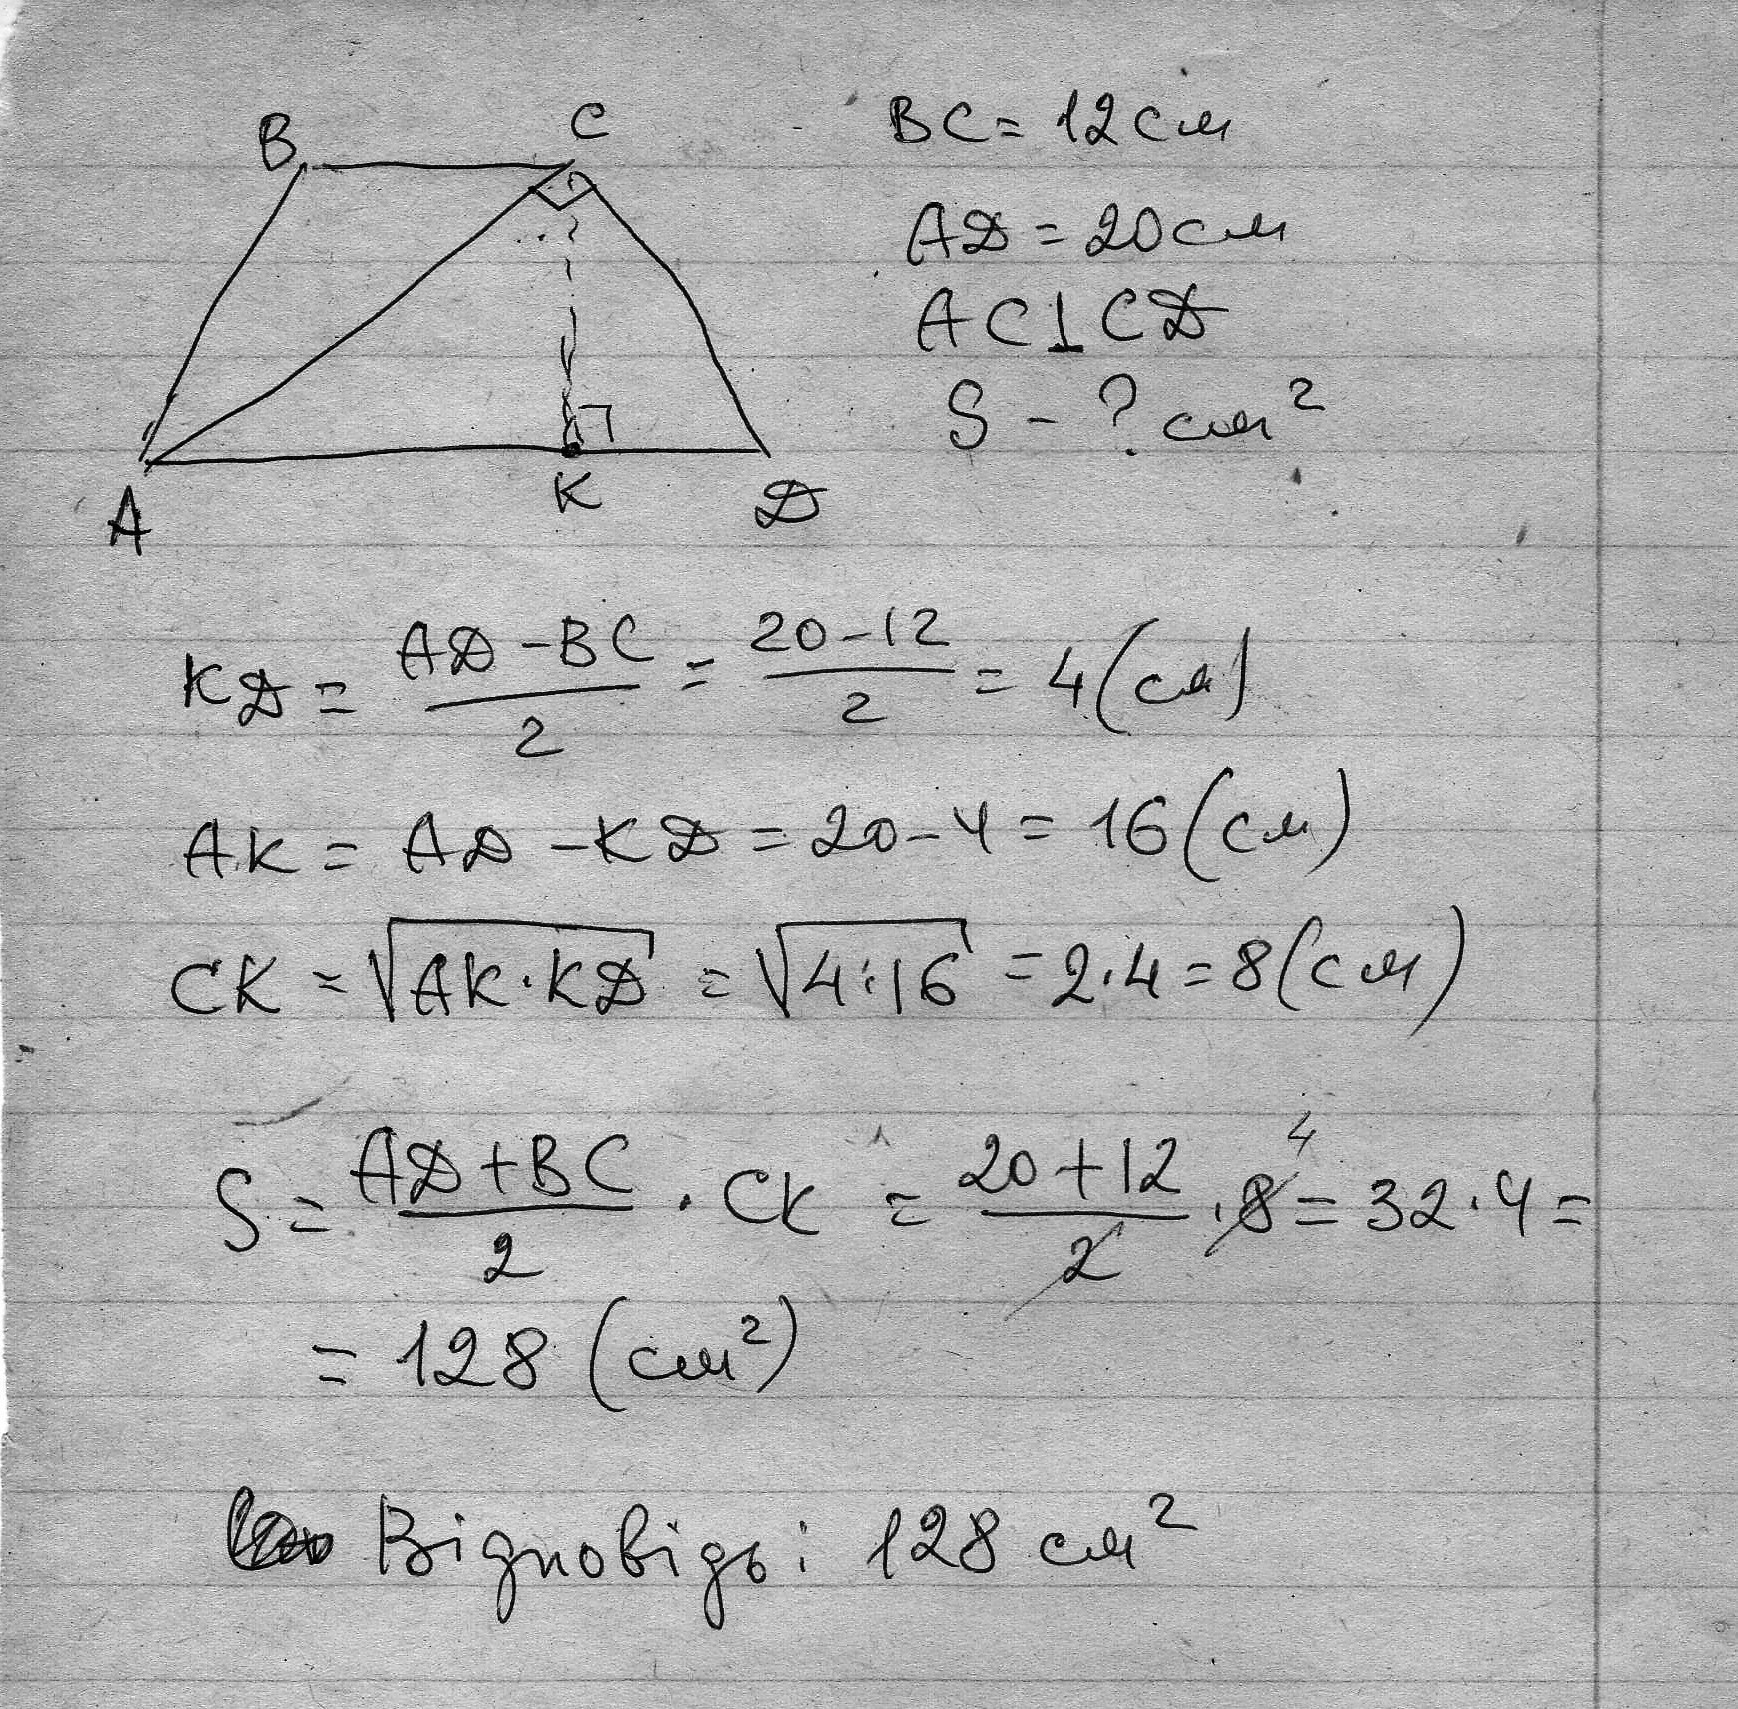 B C
BC = 12 см
AD = 20 см
AC ⊥ CD
S - ? см²
A K D
KD = (AD - BC)/2 = (20 - 12)/2 = 4 (см)
AK = AD - KD = 20 - 4 = 16 (см)
CK = √(AK · KD) = √(4 · 16) = 2 · 4 = 8 (см)
S = (AD + BC)/2 · CK = (20 + 12)/2 · 8 4 = 32 · 4 =
= 128 (см²)
Відповідь: 128 см²